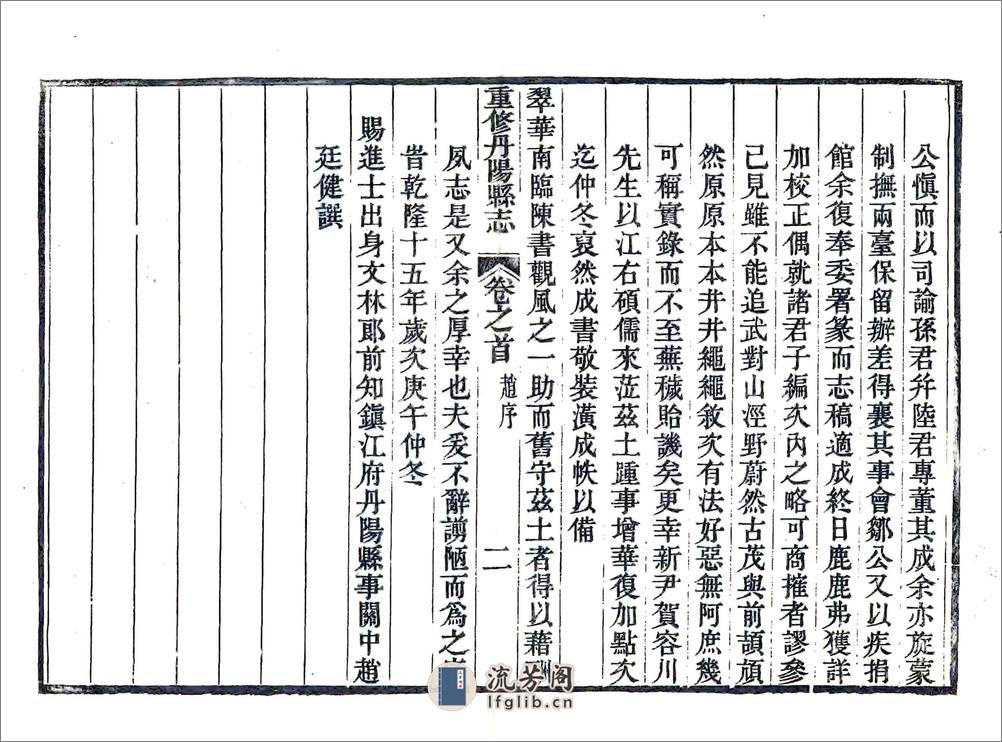 公愼而以司諭孫君幷陸君專董其成余亦旋蒙
制撫兩臺保留辦差得襄其事會鄒公又以疾捐
館余復奉委署篆而志稿適成終日鹿鹿弗獲詳
加校正偶就諸君子編次內之略可商摧者謬參
己見雖不能追武對山涇野蔚然古茂與前頡頏
然原原本本井井繩繩敘次有法好惡無阿庶幾
可稱實錄而不至蕪穢貽譏矣更幸新尹賀容川
先生以江右碩儒來蒞茲土踵事增華復加點次
迄仲冬裒然成書敬裝潢成帙以備
翠華南臨陳書觀風之一助而舊守茲土者得以藉
重修丹陽縣志
卷之首
趙序
二
夙志是又余之厚幸也夫爰不辭謭陋而爲之
旹乾隆十五年歲次庚午仲冬
賜進士出身文林郎前知鎭江府丹陽縣事關中趙
廷健譔
流芳阁
lfglib.cn